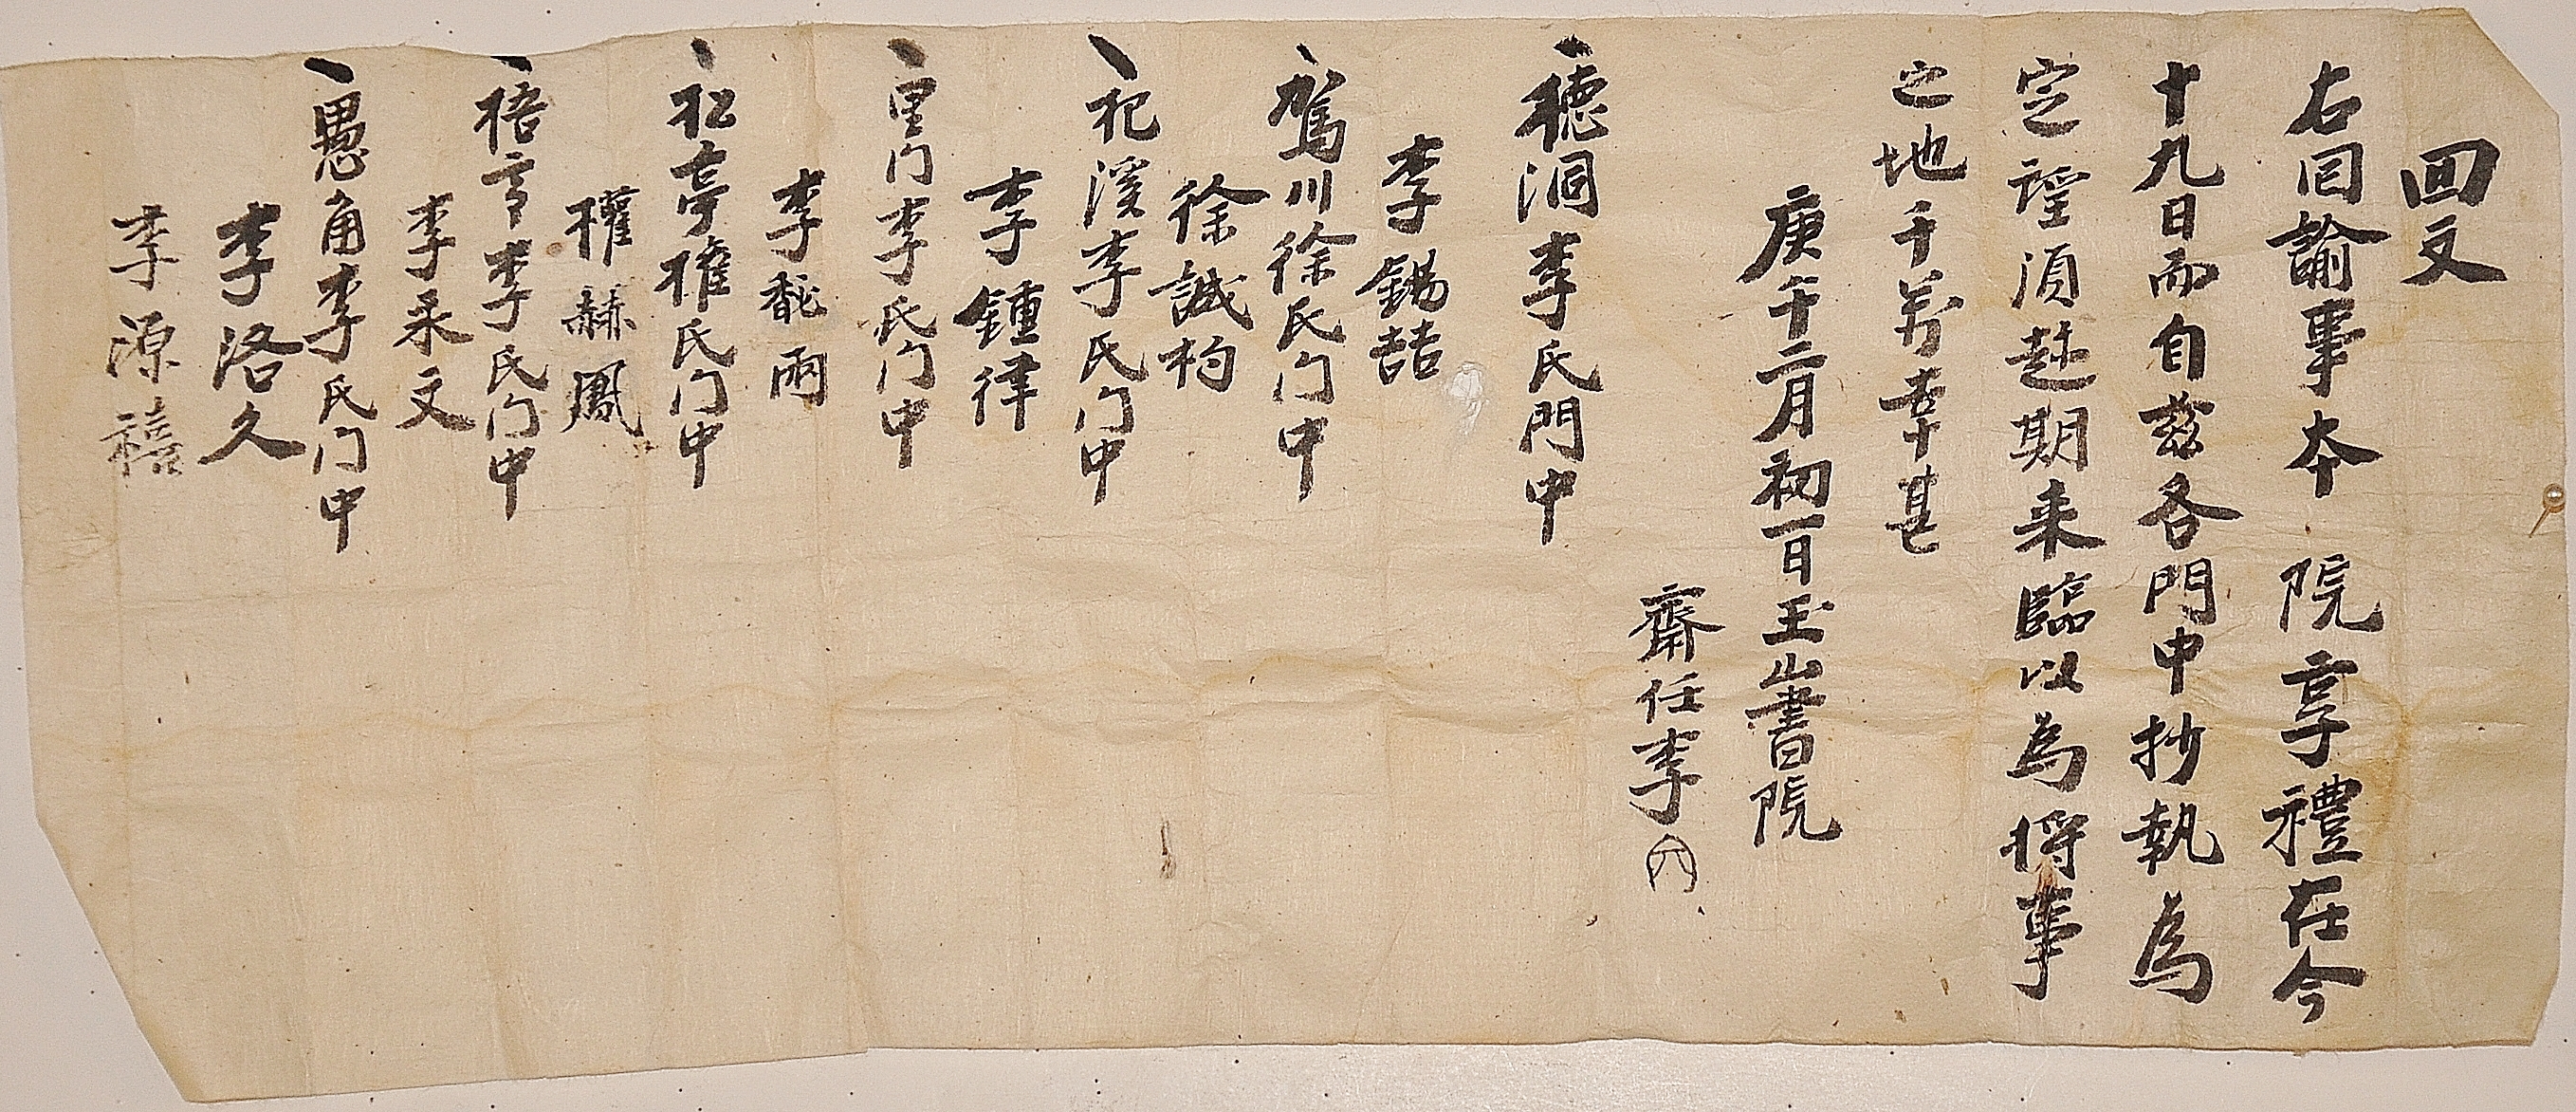 回文
右回諭事本 院享禮在今
十九日而自玆各門中抄執為
定望須趂期来臨以為将事
之地千萬幸甚
庚午二月初一日玉山書院
齋任李
德洞李氏門中
李錫喆
駕川徐氏门中
徐誠杓
杞溪李氏门中
李鍾律
里门李氏门中
李龍雨
松亭權氏门中
權赫鳳
梧亭李氏门中
李采文
愚角李氏门中
李洛久
李源禧